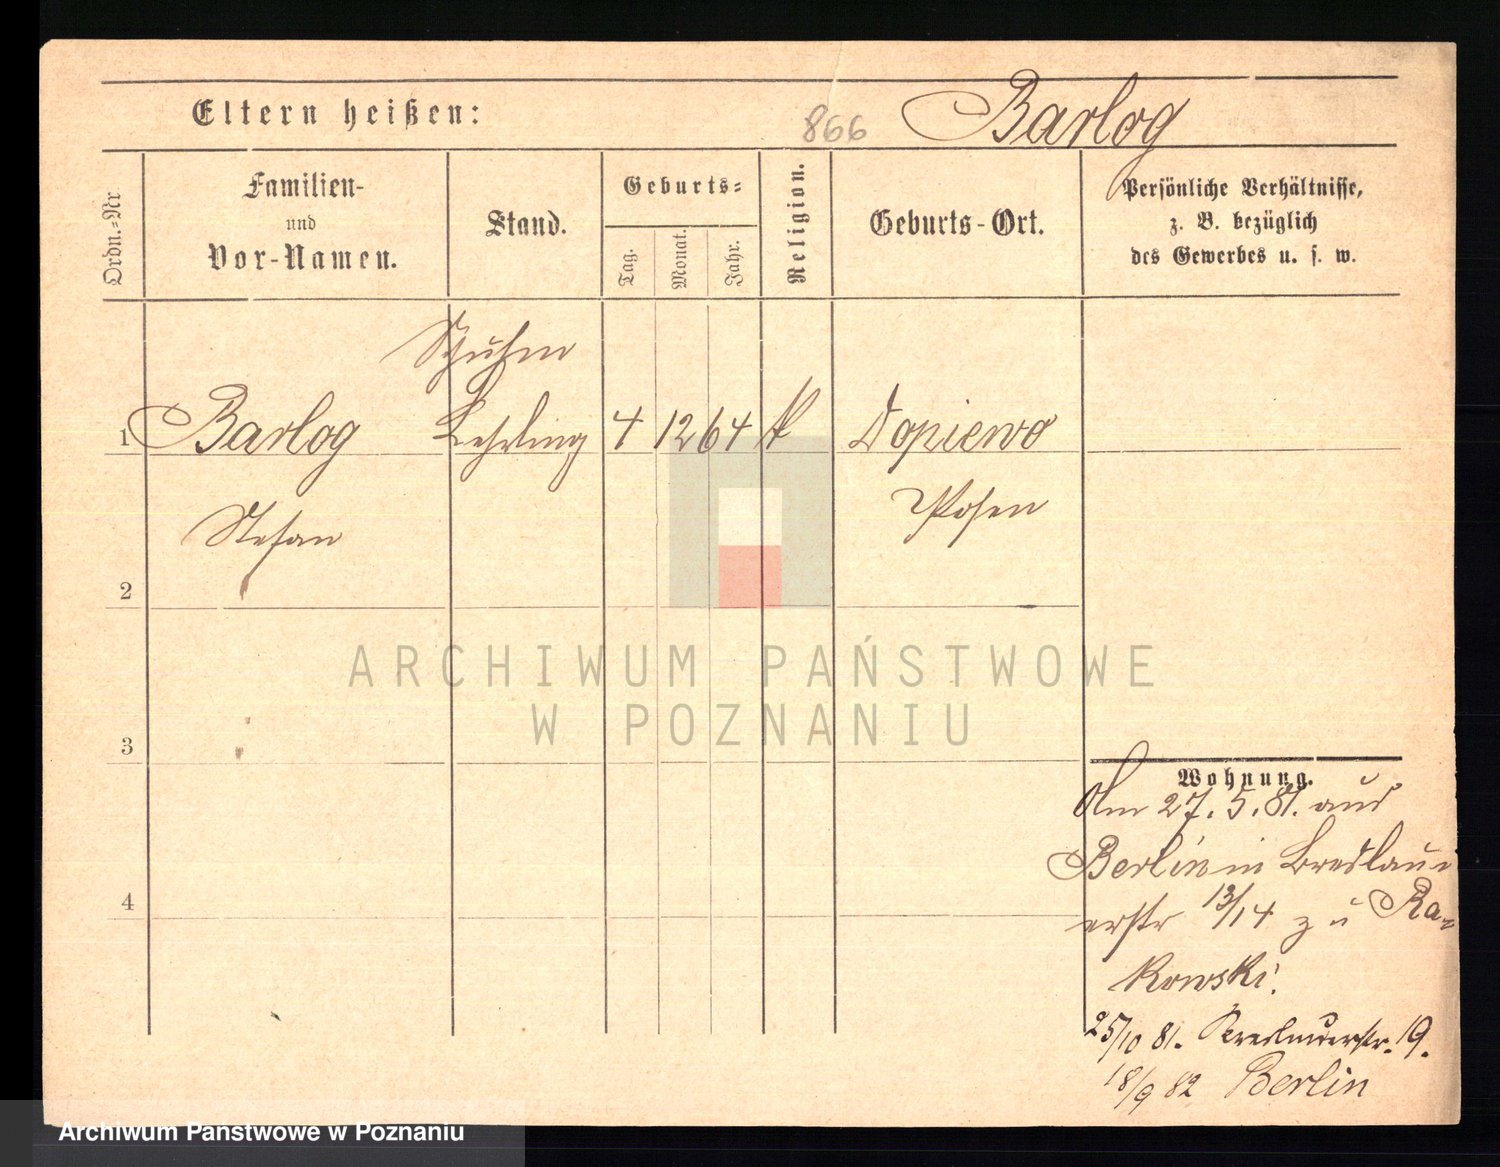 Eltern heißen:
866
Barlog
Ordn.-Nr
Familien-
und
Vor-Namen.
Stand.
Geburts-
Tag.
Monat.
Jahr.
Religion.
Geburts-Ort.
Persönliche Verhältnisse,
z. B. bezüglich
des Gewerbes u. s. w.
Schuhm
1 Barlog Lehrling 4 12 64 k Dopiewo
Stefan Posen
2
3
4
Wohnung.
Am 27. 5. 81. aus
Berlin in Breslau
erstr 13/14 zu Ra-
kowski.
25/10 81. Breslauerstr. 19.
18/9 82 Berlin
ARCHIWUM PAŃSTWOWE
W POZNANIU
Archiwum Państwowe w Poznaniu